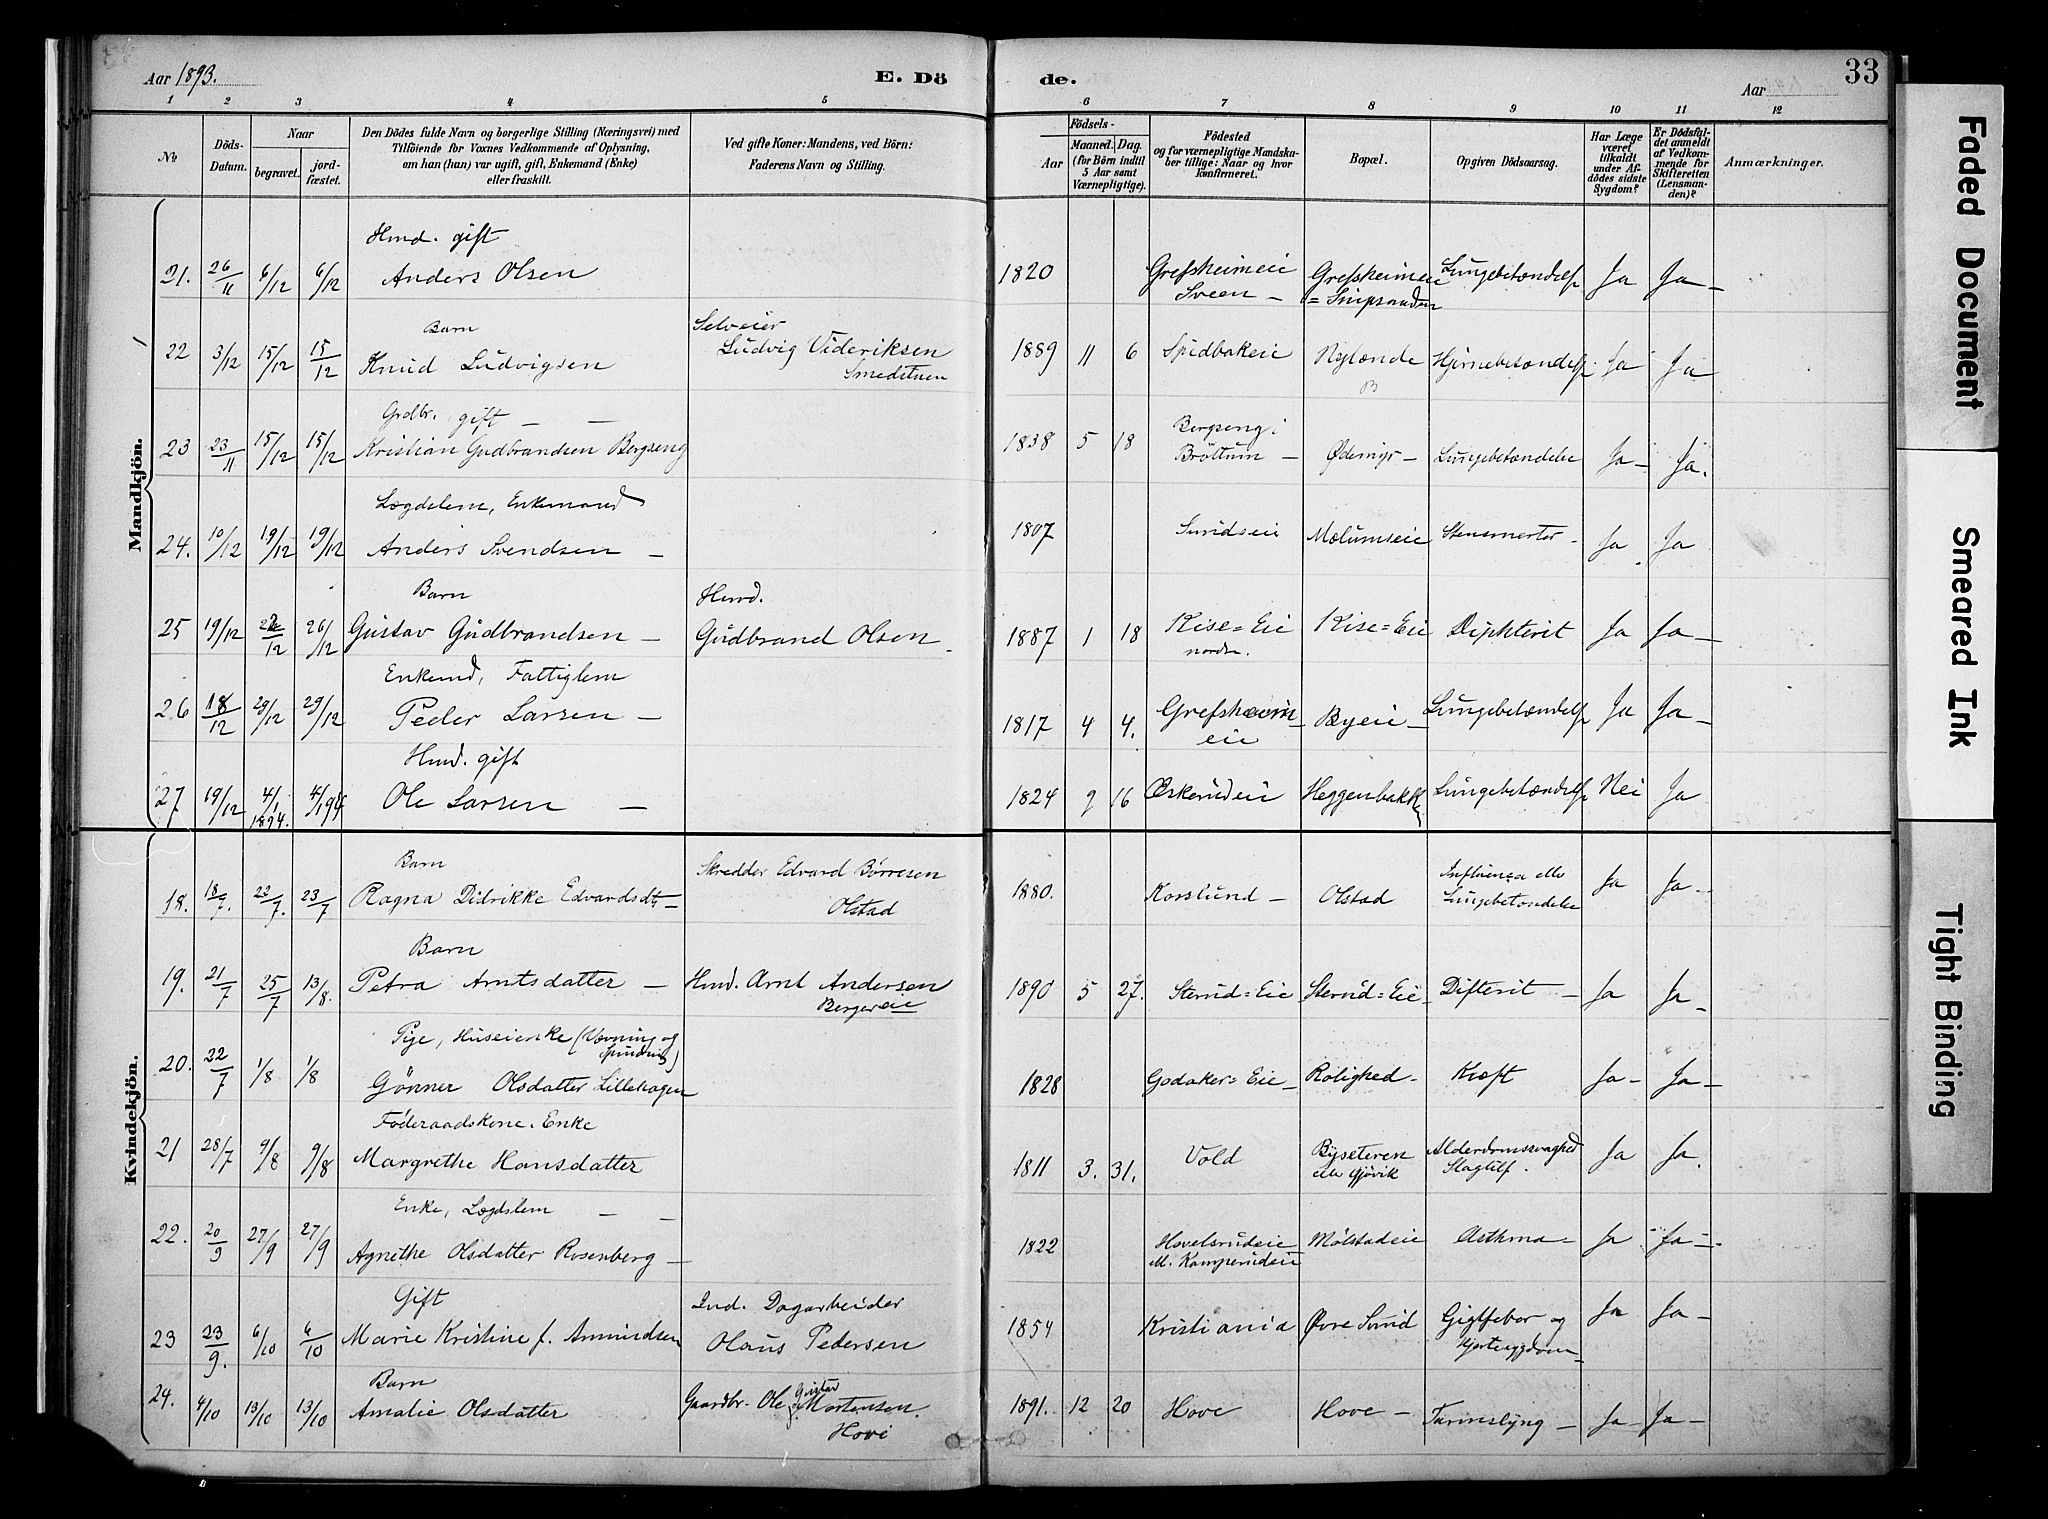 Aar 1893.
E. Dö
de.
Aar
33
1 2 3 4 5 6 7 8 9 10 11 12
No
Döds-Datum.
Naar
begravet.
jord-fæstet.
Den Dödes fulde Navn og borgerlige Stilling (Næringsvei) med
Tilföiende for Voxnes Vedkommende af Oplysning,
om han (hun) var ugift, gift, Enkemand (Enke)
eller fraskilt.
Ved gifte Koner: Mandens, ved Börn:
Faderens Navn og Stilling.
Födsels-
Aar
Maaned. Dag.
(for Börn indtil
5 Aar samt
Værnepligtige).
Födested
og for værnepligtige Mandska-
ber tillige: Naar og hvor
konfirmeret.
Bopæl.
Opgiven Dödsaarsag.
Har Læge
været
tilkaldt
under Af-
dödes sidste
Sygdom?
Er Dödsfal-
det anmeldt
af Vedkom-
mende for
Skifteretten
(Lensman-
den)?
Anmærkninger.
Mandkjön.
Husd. gift
21. 26/11 6/12 6/12 Anders Olsen 1820 Grefsheimeie Grefsheimeie Lungebetændelse Ja Ja —
Sveen —
Barn Selveier
22 3/12 15/12 15/12 Knud Ludvigsen Ludvig Videriksen 1889 11 6 Spidbakeie Nylænde Hjernebetændelse Ja Ja
Smedstuen
Grdbr. gift — —
23 23/11 15/12 15/12 Kristian Gudbrandsen Bergseng 1838 5 18 Bergseng i
Bröttum — Ödemyr — Lungebetændelse Ja — Ja.
Lægdslem, Enkemand
24. 10/12 19/12 19/12 Anders Svendsen — 1807 Sundseie Mælumseie Stensmerter - Ja Ja
Barn Husd.
25 19/12 22/12 26/12 Gustav Gudbrandsen — Gudbrand Olsen 1887 1 18 Kise=Eie Kise=Eie Diphterit Ja Ja —
nordre.
Enkemd, Fattiglem
26 18/12 29/12 29/12 Peder Larsen — 1817 4 4. Grefsheim-
eie Byeie — Lungebetændelse Ja Ja —
Husd. gift
27 19/12 4/1 1894. 4/1 94 Ole Larsen — 1824 9 16 Öskerudeie Heggenbakke Lungebetændelse Nei Ja
Kvindekjön.
Barn Skredder Edvard Börresen
18. 18/7. 22/7. 23/7 Ragna Didrikke Edvardsdt. — Olstad 1880. Korslund — Olstad Influenza eller
Lungebetændelse Ja Ja —
Barn
19. 21/7 25/7 13/8. Petra Arntsdatter — Husd. Arnt Andersen 1890 5 27. Sterud=Eie Sterud=Eie — Difterit — Ja Ja —
Bergereie
Pige, Huseierske (Vævning og
Spinding)
20. 22/7 1/8 1/8 Gönner Olsdatter Lillehagen 1828 Godaker=Eie — Rolighed — Kræft Ja — Ja —
Föderaadskone. Enke
21 28/7 9/8 9/8 Margrethe Hansdatter 1811 3. 31. Vold Byseteren
eller Gjövik Alderdomssvaghed
Slagtilf. Ja Ja.
Enke, Lægdslem — —
22. 20/9 27/9 27/9 Agnethe Olsdatter Rosenberg — 1822 Hovelsrudeie Mölstadeie Asthma — Ja Ja —
Gift Ind. Dagarbeider
23 23/9. 6/10 6/10 Marie Kristine f. Amundsen Olaus Pedersen 1854 Kristiania Övre Sund Gigtfeber og
Hjertesygdom — Ja Ja —
Barn
24. 4/10 13/10 13/10 Amalie Olsdatter Gaardbr. Ole Gustav Mortensen. 1891. 12 20 Hove Hove — Tarmslyng — Ja — Ja —
Hove
Faded Document
Smeared Ink
Tight Binding